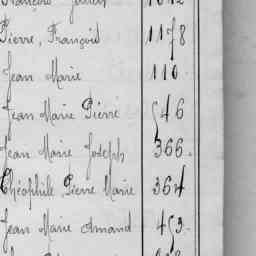 Pierre, François 1178
Jean Marie 110
Jean Marie Pierre 546
Jean Marie Joseph 366
Théophile Pierre Marie 364
Jean Marie Amand 453